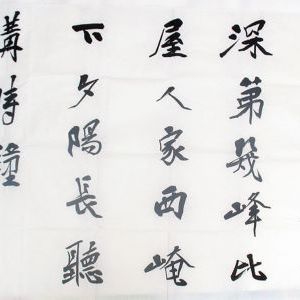 深第幾峰比
屋人家西崦
下夕陽長聽
時鐘